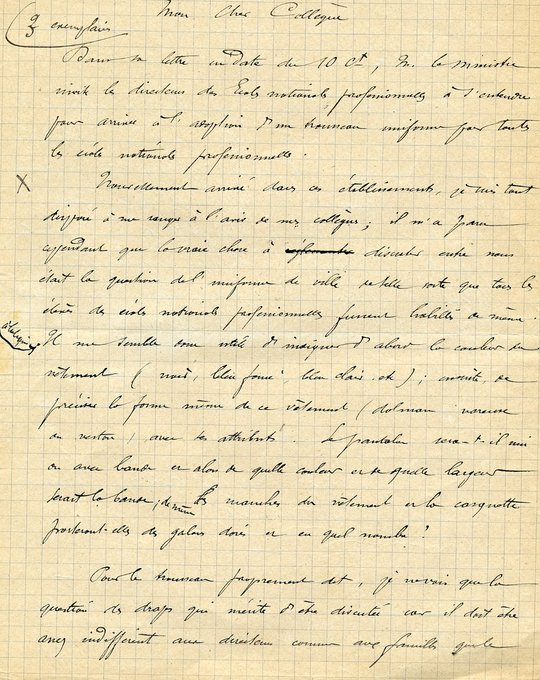 2 exemplaires
Mon cher Collègue
Dans sa lettre en date du 10 Ct, M. le ministre
invite les directeurs des Ecoles nationales professionnelles à s'entendre
pour arriver à l'adoption d'un trousseau uniforme pour toutes
les écoles nationales professionnelles.
X Nouvellement arrivé dans ces établissements, je suis tout
disposé à me ranger à l'avis de mes collègues; il m'a paru
cependant que la vraie chose à réglementer discuter entre nous
était la question de l'uniforme de ville de telle sorte que tous les
élèves des écoles nationales professionnelles fussent habillés de même.
Il me semble donc utile d'indiquer d'abord la couleur du
vêtement (noir, bleu foncé, bleu clair, etc); ensuite, de
préciser la forme même de ce vêtement (dolman vareuse
ou veston) avec ses attributs. Le pantalon sera-t-il uni
ou avec bande et alors de quelle couleur et de quelle largeur
serait la bande; de même les manches du vêtement et la casquette
porteront-elles des galons dorés et en quel nombre?
Pour le trousseau proprement dit, je ne vois que la
question des draps qui mérite d'être discutée car il doit être
assez indifférent aux directeurs comme aux familles que le